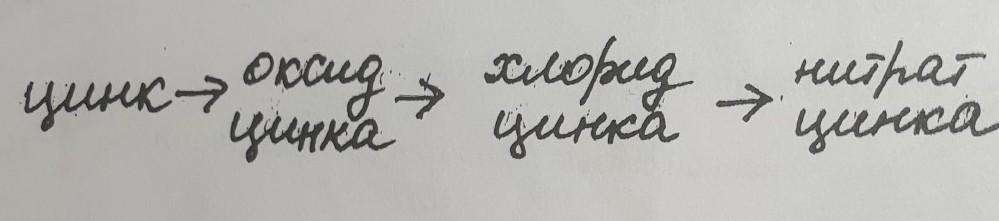 цинк → оксид цинка → хлорид цинка → нитрат цинка